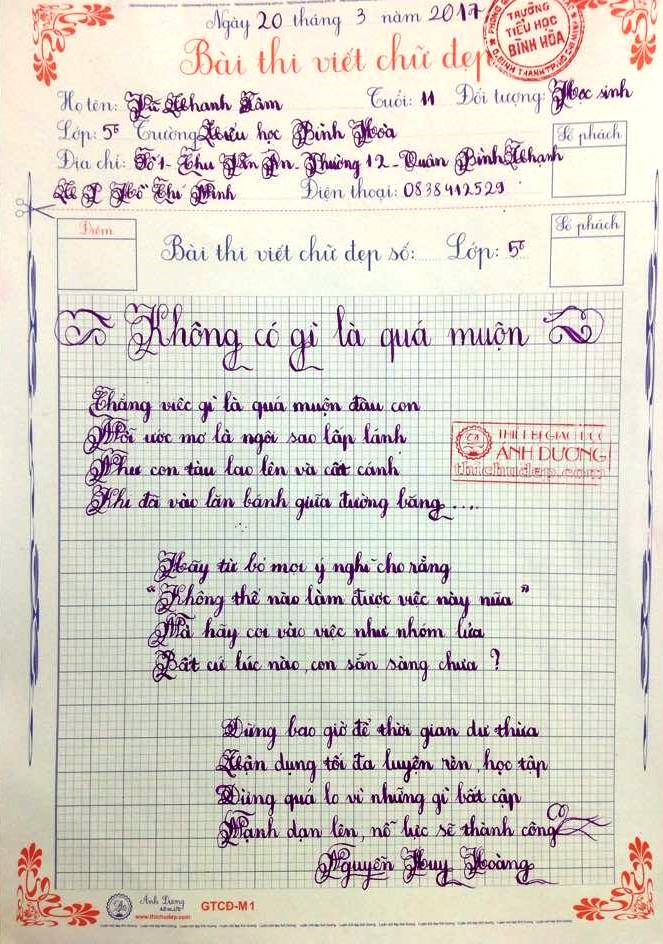 Ngày 20 tháng 3 năm 2017
TRƯỜNG
TIỂU HỌC
BÌNH HÒA
Bài thi viết chữ đẹp
Họ tên: Vũ Khanh Lâm
Tuổi: 11 Đối tượng: Học sinh
Lớp: 5⁶ Trường Tiểu học Bình Hòa
Số phách
Địa chỉ: Số 1 - Chu Văn An - Phường 12 - Quận Bình Thạnh
Hồ Chí Minh Điện thoại: 0838412529
Điểm
Số phách
Bài thi viết chữ đẹp số: Lớp: 5⁶
Không có gì là quá muộn
Chẳng việc gì là quá muộn đâu con
Mỗi ước mơ là ngôi sao lấp lánh
Như con tàu lao lên và cất cánh
Khi đã vào lăn bánh giữa đường băng....
THIẾT BỊ GIÁO DỤC
ÁNH DƯƠNG
thichudep.com
Hãy từ bỏ mọi ý nghĩ cho rằng
"Không thể nào làm được việc này nữa"
Mà hãy coi vào việc như nhóm lửa
Bất cứ lúc nào, con sẵn sàng chưa ?
Đừng bao giờ để thời gian dư thừa
Tận dụng tối đa luyện rèn, học tập
Đừng quá lo vì những gì bất cập
Mạnh dạn lên, nỗ lực sẽ thành công
Nguyễn Huy Hoàng
Ánh Dương
www.thichudep.com
GTCĐ-M1